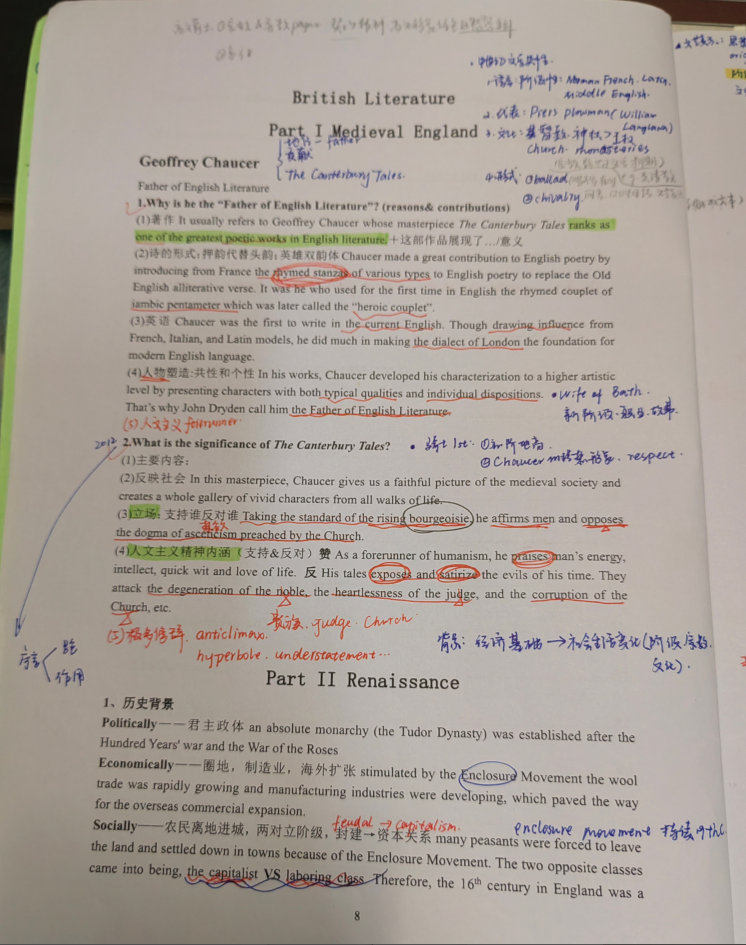 ·中世纪文学共性
1.语言:阶级性:Norman French. Latin.
Middle English.
British Literature
2.代表:Piers plowman(William
Langland)
Part I Medieval England
3.文化:基督教.神权>王权
church. monasteries
地位-father
贡献
The Canterbury Tales.
4.形式:①ballad
②chivalry
Geoffrey Chaucer
Father of English Literature
1.Why is he the “Father of English Literature”? (reasons& contributions)
(1)著作 It usually refers to Geoffrey Chaucer whose masterpiece The Canterbury Tales ranks as
one of the greatest poetic works in English literature.＋这部作品展现了…/意义
(2)诗的形式:押韵代替头韵;英雄双韵体 Chaucer made a great contribution to English poetry by
introducing from France the rhymed stanzas of various types to English poetry to replace the Old
English alliterative verse. It was he who used for the first time in English the rhymed couplet of
iambic pentameter which was later called the “heroic couplet”.
(3)英语 Chaucer was the first to write in the current English. Though drawing influence from
French, Italian, and Latin models, he did much in making the dialect of London the foundation for
modern English language.
(4)人物塑造:共性和个性 In his works, Chaucer developed his characterization to a higher artistic
level by presenting characters with both typical qualities and individual dispositions.
·Wife of Bath.
That’s why John Dryden call him the Father of English Literature.
(5)人文主义 forerunner
2013
2.What is the significance of The Canterbury Tales?
·骑士 1st: ①
②Chaucer respect.
(1)主要内容:
(2)反映社会 In this masterpiece, Chaucer gives us a faithful picture of the medieval society and
creates a whole gallery of vivid characters from all walks of life.
(3)立场:支持谁反对谁 Taking the standard of the rising bourgeoisie, he affirms men and opposes
the dogma of asceticism preached by the Church.
(4)人文主义精神内涵（支持&反对）赞 As a forerunner of humanism, he praises man’s energy,
intellect, quick wit and love of life. 反 His tales exposes and satirize the evils of his time. They
attack the degeneration of the noble, the heartlessness of the judge, and the corruption of the
Church, etc.
贵族. judge. Church
(5) anticlimax.
hyperbole. understatement...
序言
作用
背景:经济基础→社会生活变化(阶级.宗教.
文化).
Part II Renaissance
1、历史背景
Politically——君主政体 an absolute monarchy (the Tudor Dynasty) was established after the
Hundred Years' war and the War of the Roses
Economically——圈地，制造业，海外扩张 stimulated by the Enclosure Movement the wool
trade was rapidly growing and manufacturing industries were developing, which paved the way
for the overseas commercial expansion.
feudal → capitalism.
enclosure movement 持续
Socially——农民离地进城，两对立阶级，封建→资本关系 many peasants were forced to leave
the land and settled down in towns because of the Enclosure Movement. The two opposite classes
came into being, the capitalist VS laboring class. Therefore, the 16th century in England was a
8